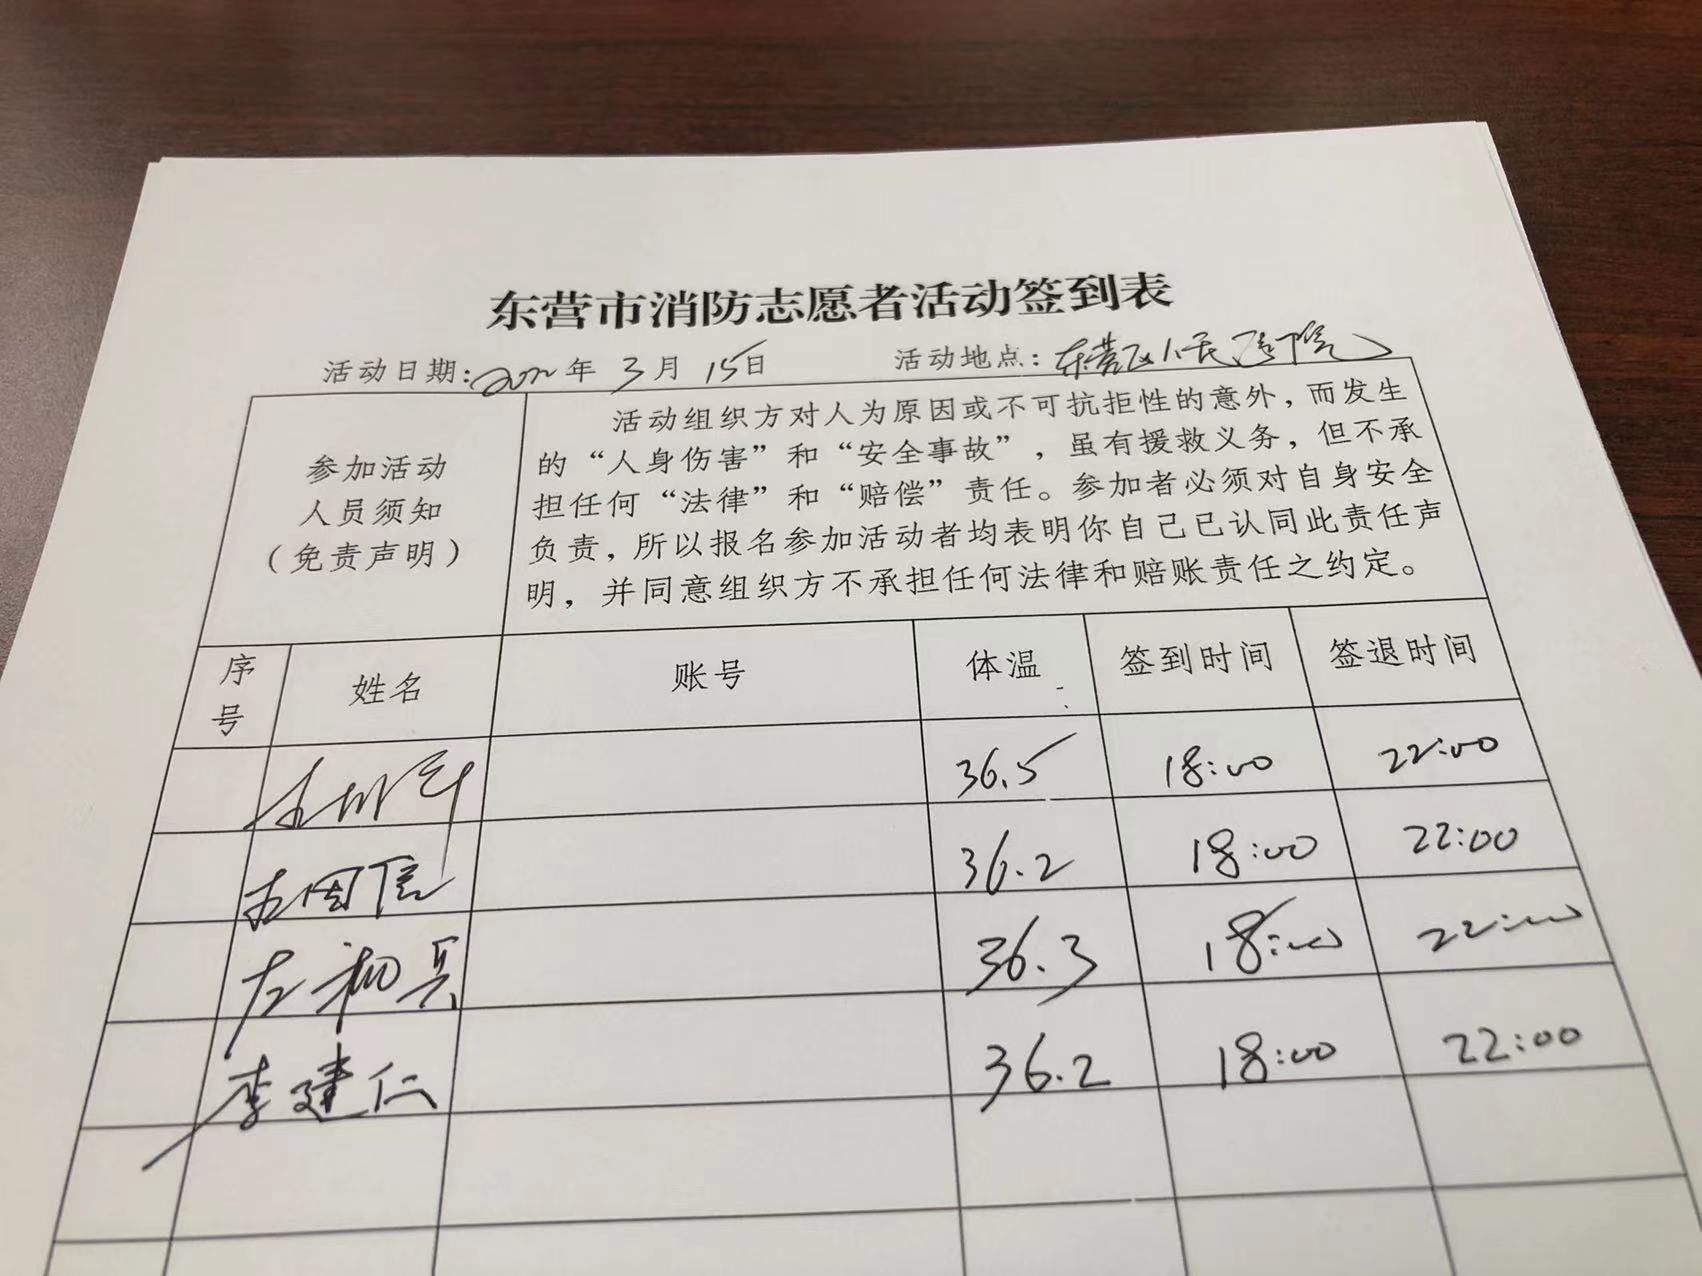 东营市消防志愿者活动签到表
活动日期:2022年3月15日 活动地点:东营区人民医院
参加活动
人员须知
(免责声明)
活动组织方对人为原因或不可抗拒性的意外,而发生
的“人身伤害”和“安全事故”,虽有援救义务,但不承
担任何“法律”和“赔偿”责任。参加者必须对自身安全
负责,所以报名参加活动者均表明你自己已认同此责任声
明,并同意组织方不承担任何法律和赔账责任之约定。
序号 姓名 账号 体温 签到时间 签退时间
36.5 18:00 22:00
国信 36.2 18:00 22:00
36.3 18:00 22:00
李建仁 36.2 18:00 22:00